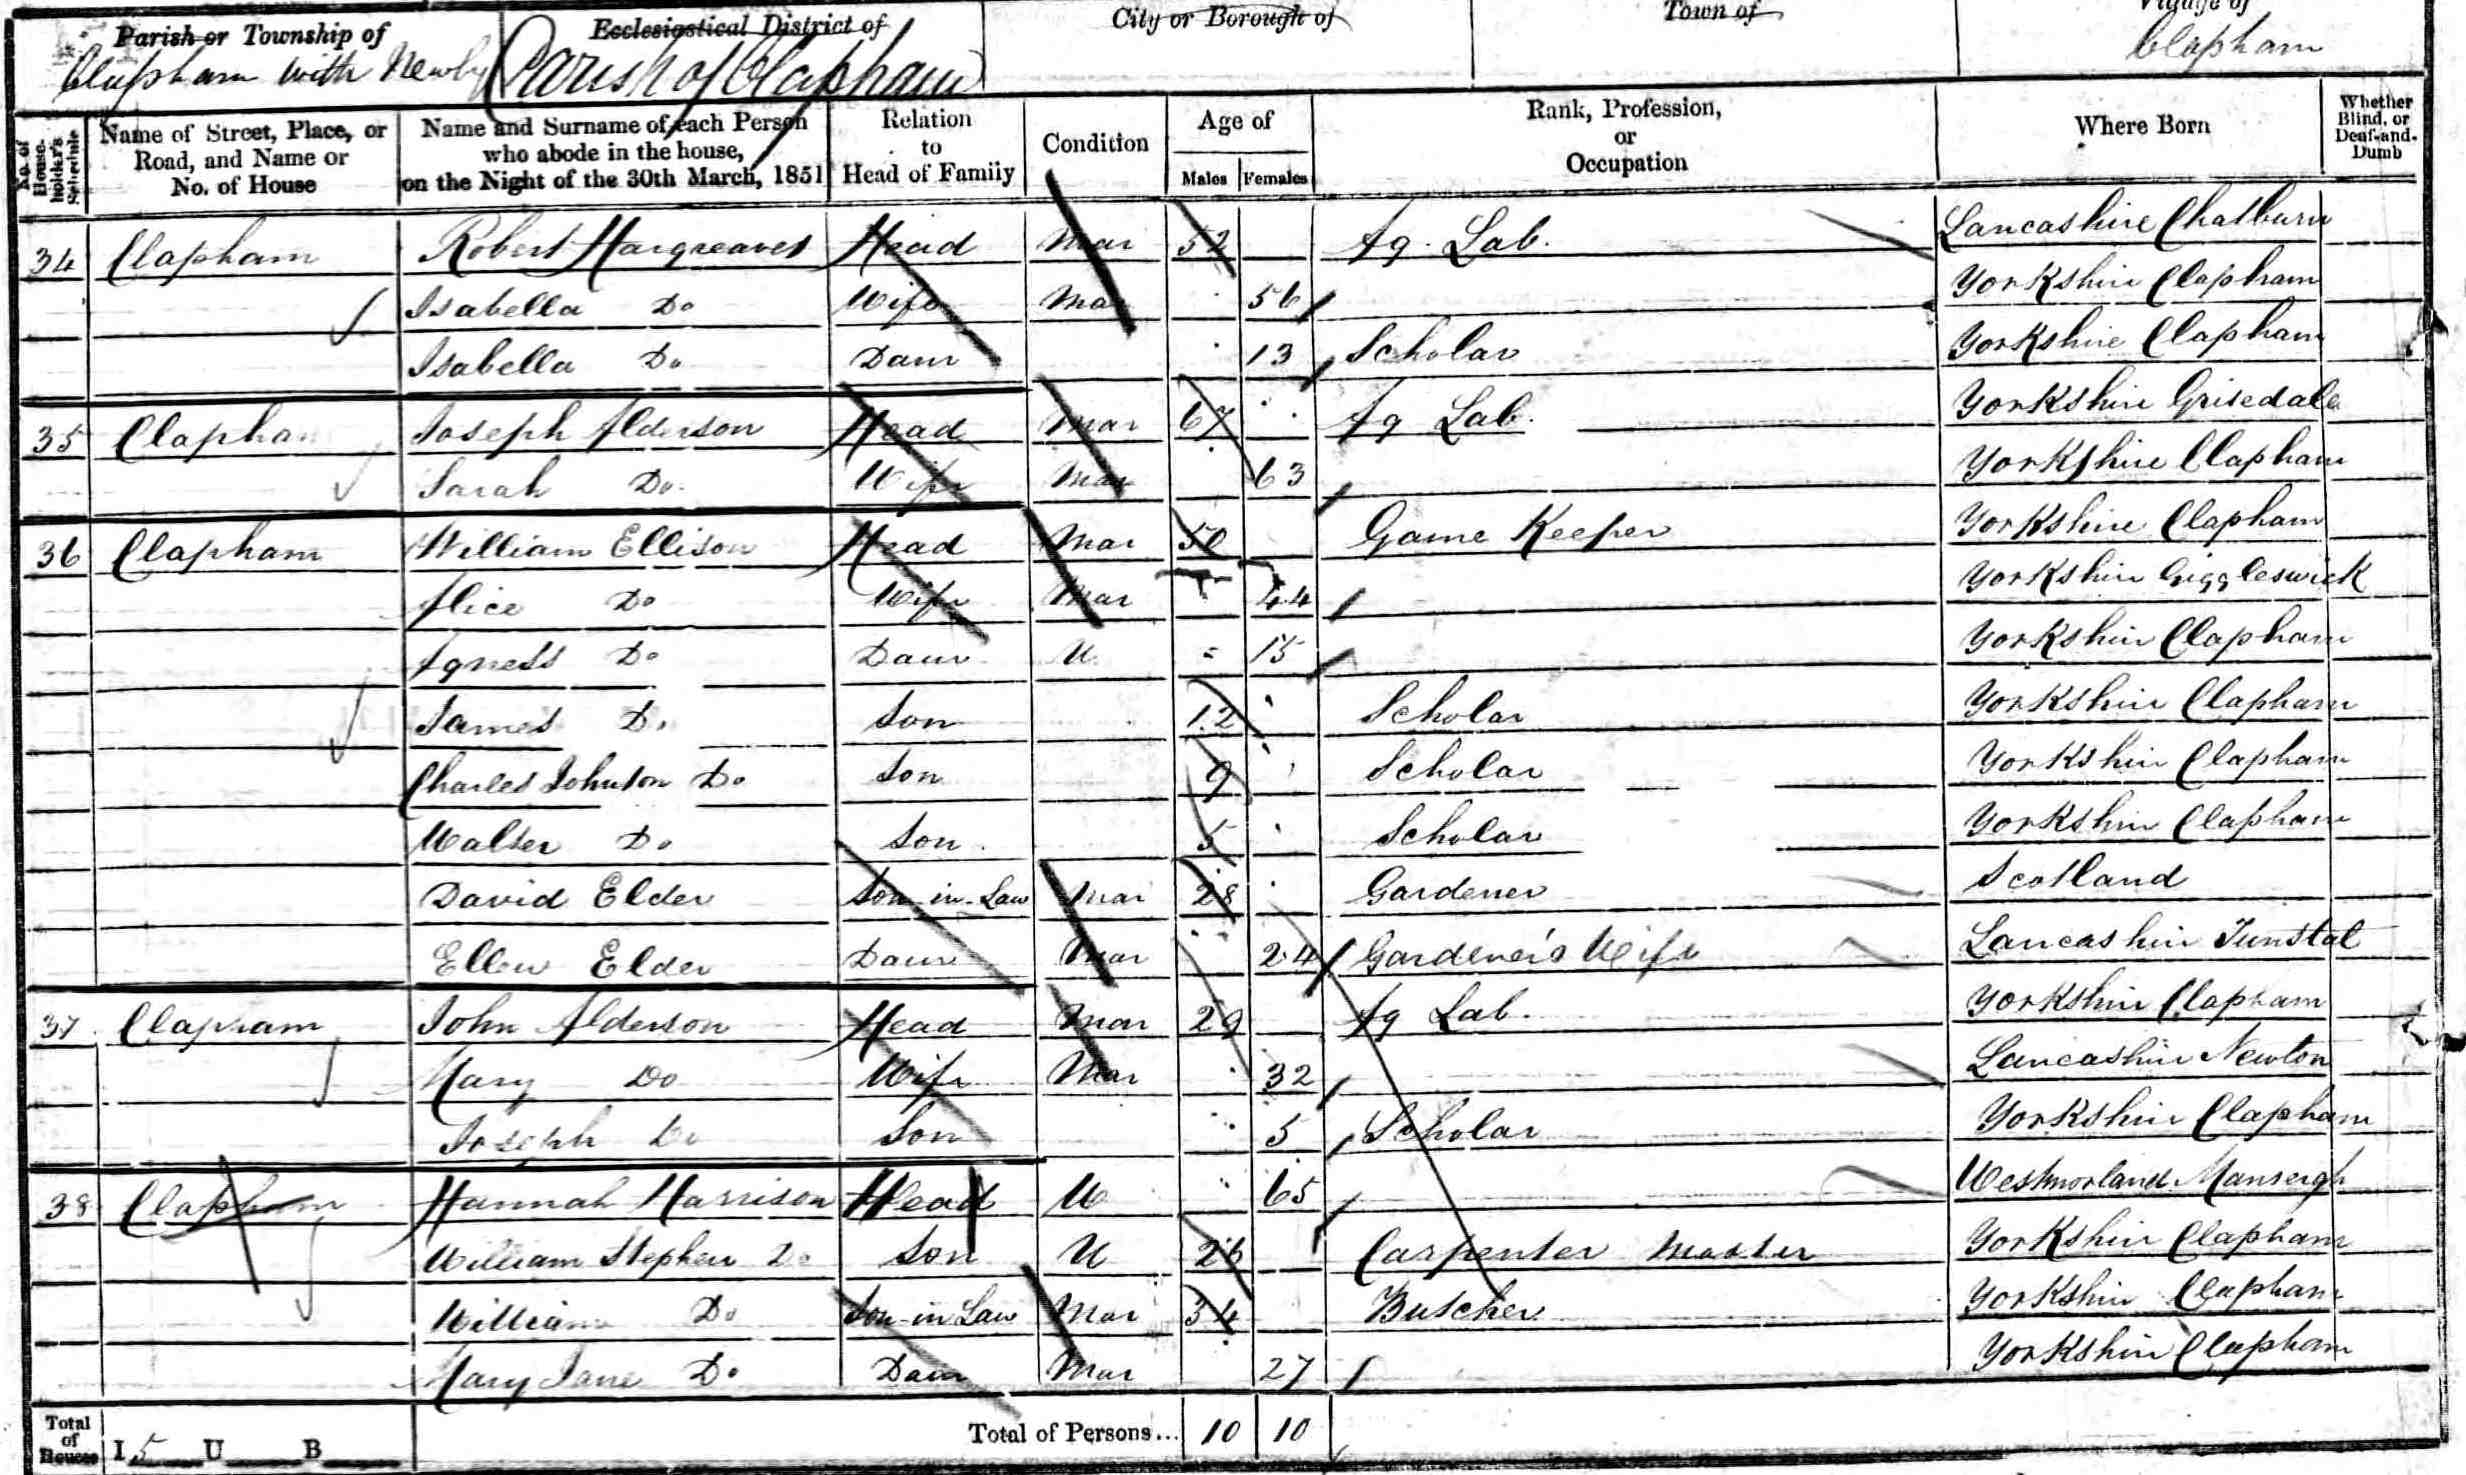 Parish or Township of
Clapham with Newby
Ecclesiastical District of
Parish of Clapham
City or Borough of
Town of
Village of
Clapham
No. of House-holder's Schedule
Name of Street, Place, or Road, and Name or No. of House
Name and Surname of each Person who abode in the house, on the Night of the 30th March, 1851
Relation to Head of Family
Condition
Age of
Males Females
Rank, Profession, or Occupation
Where Born
Whether Blind, or Deaf-and-Dumb
34 Clapham Robert Hargreaves Head Mar 52 Ag. Lab. Lancashire Chatburn
Isabella Do Wife Mar 56 Yorkshire Clapham
Isabella Do Daur 13 Scholar Yorkshire Clapham
35 Clapham Joseph Alderson Head Mar 67 Ag Lab. Yorkshire Grisedale
Sarah Do. Wife Mar 63 Yorkshire Clapham
36 Clapham William Ellison Head Mar 50 Game Keeper Yorkshire Clapham
Alice Do Wife Mar 44 Yorkshire Giggleswick
Agness Do Daur U 15 Yorkshire Clapham
James Do Son 12 Scholar Yorkshire Clapham
Charles Johnson Do Son 9 Scholar Yorkshire Clapham
Walter Do Son 5 Scholar Yorkshire Clapham
David Elder Son-in-Law Mar 28 Gardener Scotland
Ellen Elder Daur Mar 24 Gardener's Wife Lancashire Tunstal
37 Clapham John Alderson Head Mar 29 Ag Lab. Yorkshire Clapham
Mary Do Wife Mar 32 Lancashire Newton
Joseph Do Son 5 Scholar Yorkshire Clapham
38 Clapham Hannah Harrison Head U 65 Westmorland Mansergh
William Stephen Do Son U 26 Carpenter Master Yorkshire Clapham
William Do Son-in Law Mar 34 Butcher Yorkshire Clapham
Mary Jane Do Daur Mar 27 Yorkshire Clapham
Total of Houses I 5 U B
Total of Persons... 10 10